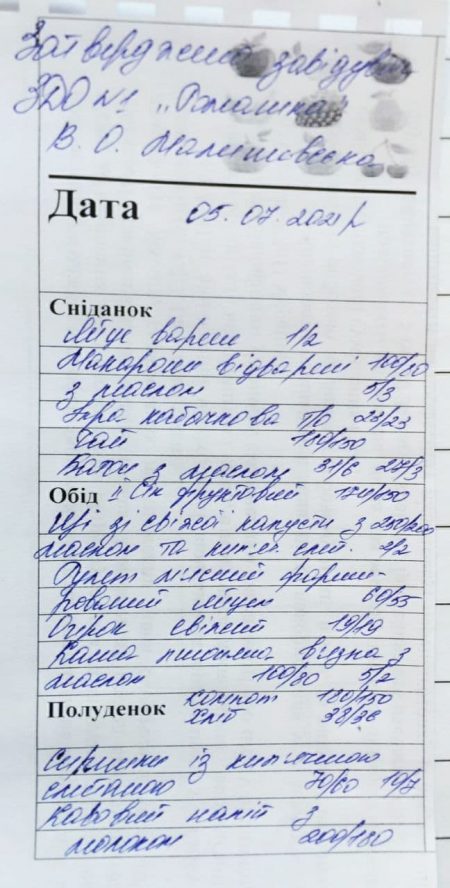 Затверджений завідувач
ЗДО №1 "Ромашка"
В. О. Малишовська
Дата 05.07.2021р
Сніданок
Яйце варене 1/2
Макарони відварні 100/80
з маслом 5/3
Ікра кабачкова п/о 28/23
Чай 180/150
Батон з маслом 31/6 27/3
Обід ІІ Сік фруктовий 170/150
Щі зі свіжої капусти з 250/200
маслом та кип'яч. смет. 2/2
Рулет м'ясний фарши-
рований яйцем 60/55
Огірок свіжий 19/19
Каша пшонна в'язка з
маслом 100/80 5/2
Полуденок компот 180/150
Хліб 38/36
Сирники із кип'яченою
сметаною 70/60 10/7
Кавовий напій з
молоком 200/180